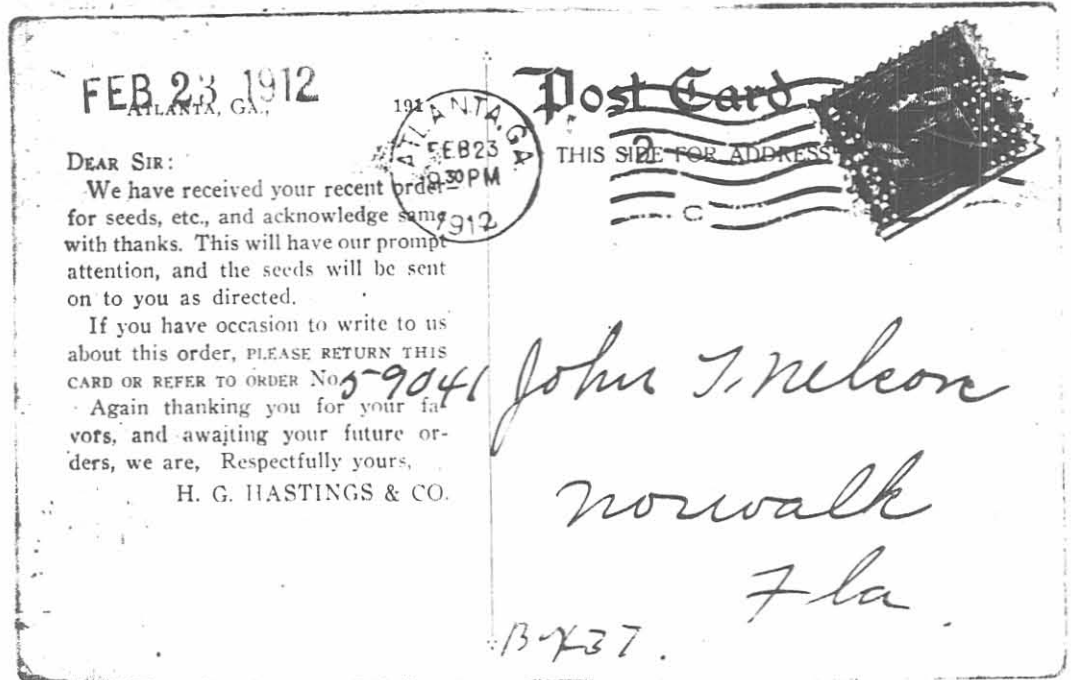 FEB 23 1912
ATLANTA, GA., 191
DEAR SIR:
We have received your recent order
for seeds, etc., and acknowledge same
with thanks. This will have our prompt
attention, and the seeds will be sent
on to you as directed.
If you have occasion to write to us
about this order, PLEASE RETURN THIS
CARD OR REFER TO ORDER No. 59041
Again thanking you for your fa-
vors, and awaiting your future or-
ders, we are, Respectfully yours,
H. G. HASTINGS & CO.
ATLANTA, GA.
FEB 23
9 30 PM
1912
Post Card
THIS SIDE FOR ADDRESS
2
C
John T. Nelson
Norwalk
Fla